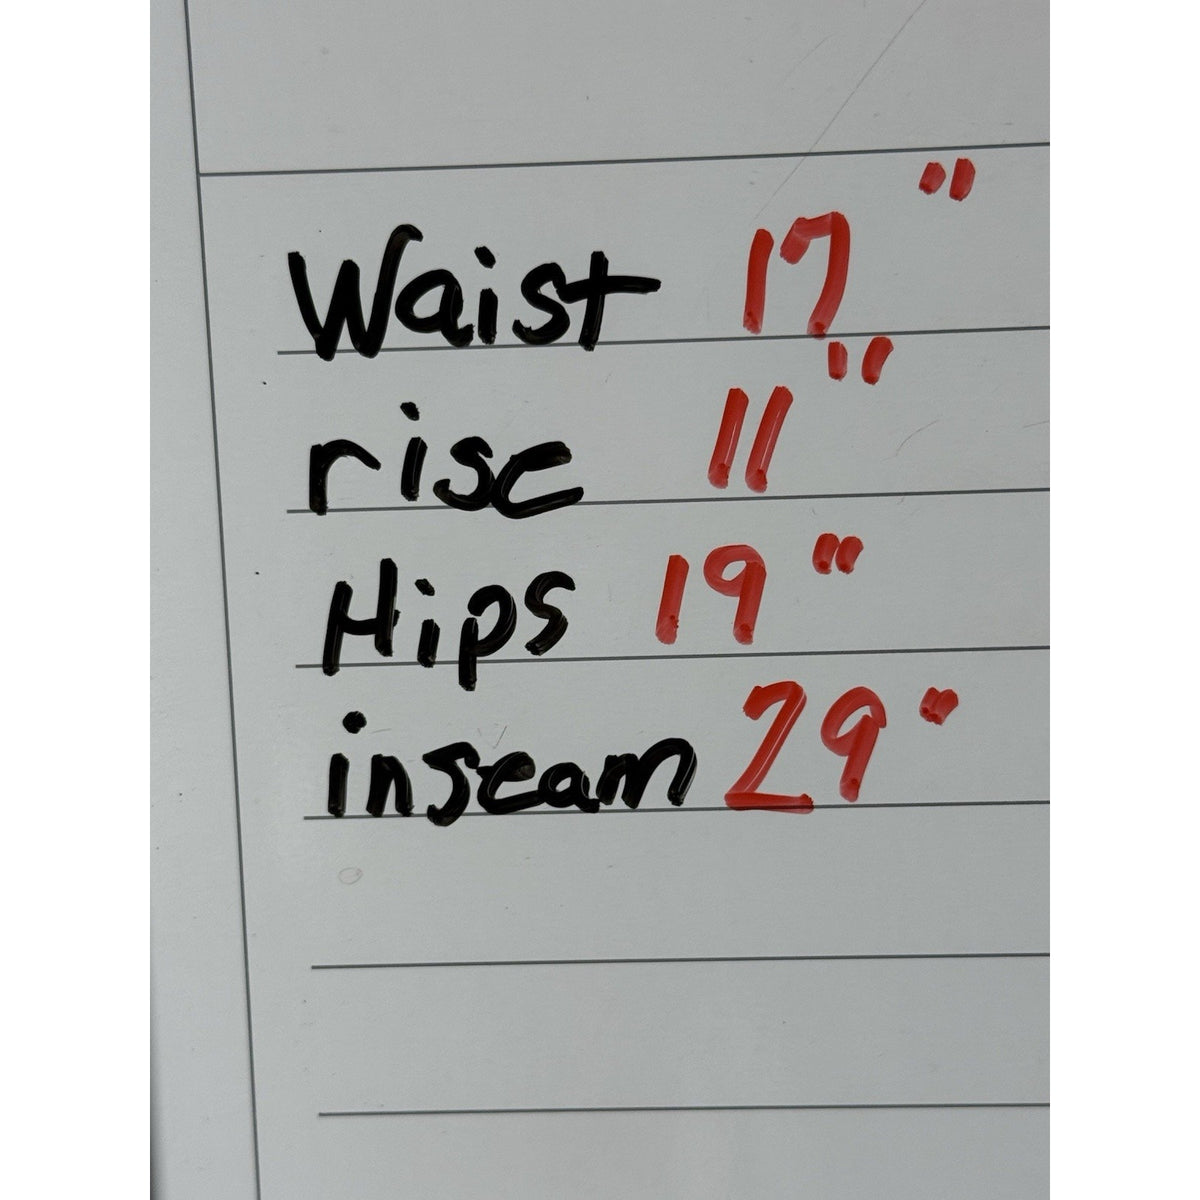 Waist 17"
rise 11"
Hips 19"
inseam 29"